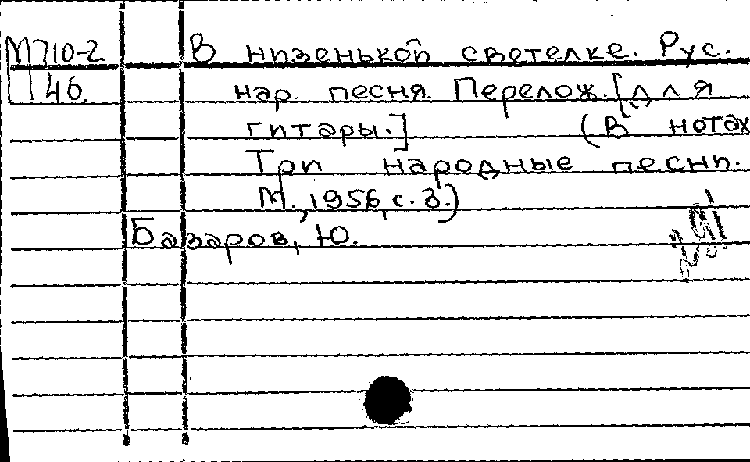 М710-2 В низенькой светелке. Рус.
46. нар. песня. Перелож. [для
гитары.] (В нотах
Три народные песни.
М., 1956, с. 3.)
Базаров, Ю.